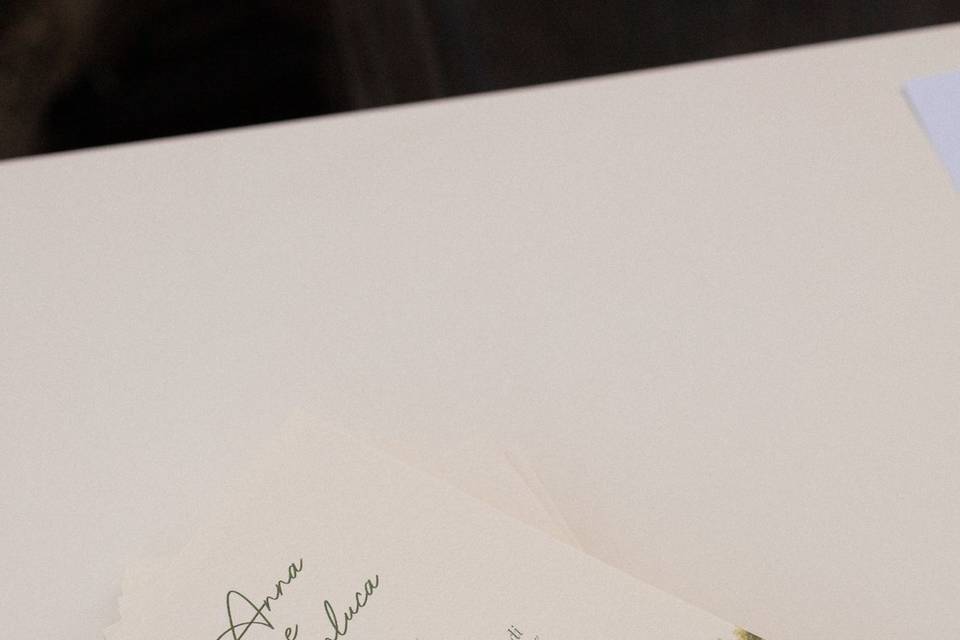 Anna
e
nluca
di